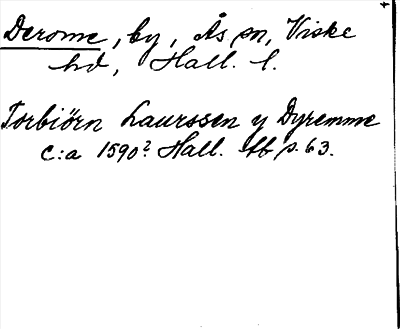 Derome, by, Ås sn, Viske
hd, Hall. l.
Torbiörn Laurssen y Dyremme
c:a 1590? Hall. tb p. 63.